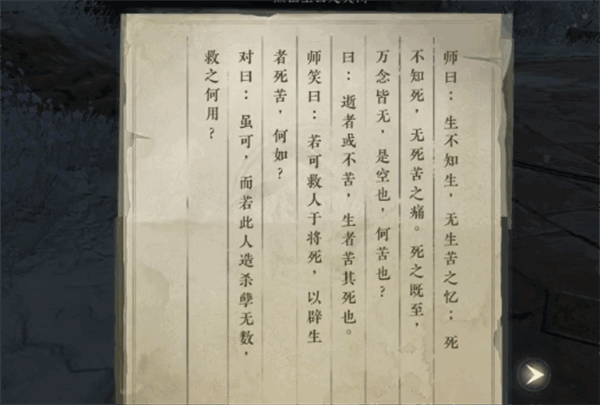 师曰：生不知生，无生苦之忆；死
不知死，无死苦之痛。死之既至，
万念皆无，是空也，何苦也？
曰：逝者或不苦，生者苦其死也。
师笑曰：若可救人于将死，以辟生
者死苦，何如？
对曰：虽可，而若此人造杀孽无数，
救之何用？